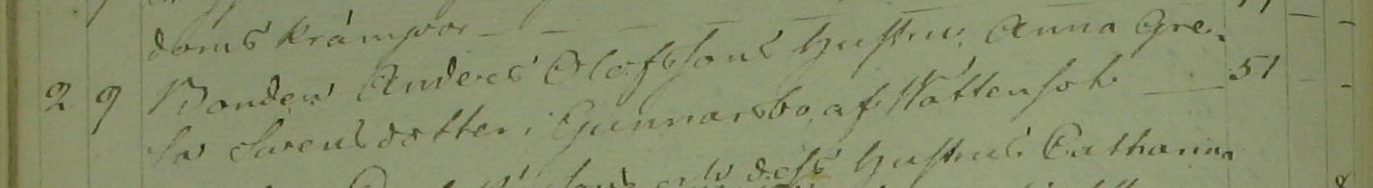 doms krámpor — — — — — —
2 9 Bonden Anders Olofssons hustru Anna Gre- 51 — -
ta Svensdotter i Gunnarsbo, af Wattensot —
hustrus Catharina